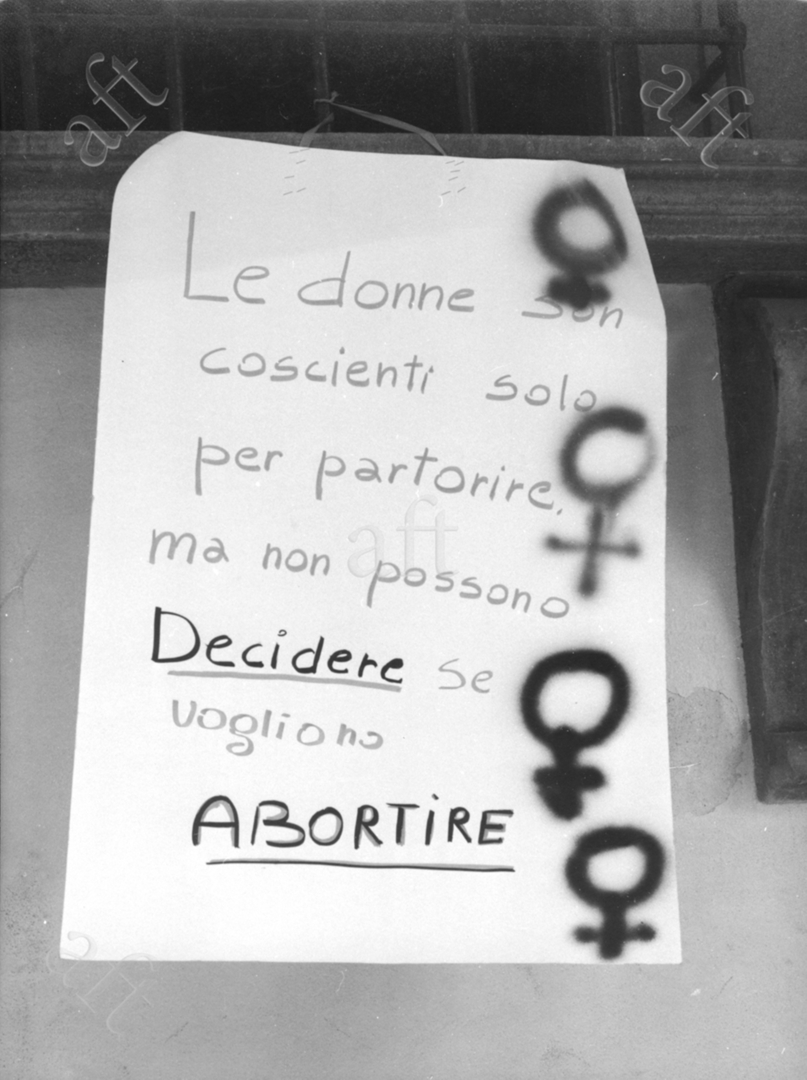 aft
aft
Le donne son
coscienti solo
per partorire,
ma non possono
aft
Decidere se
vogliono
ABORTIRE
aft